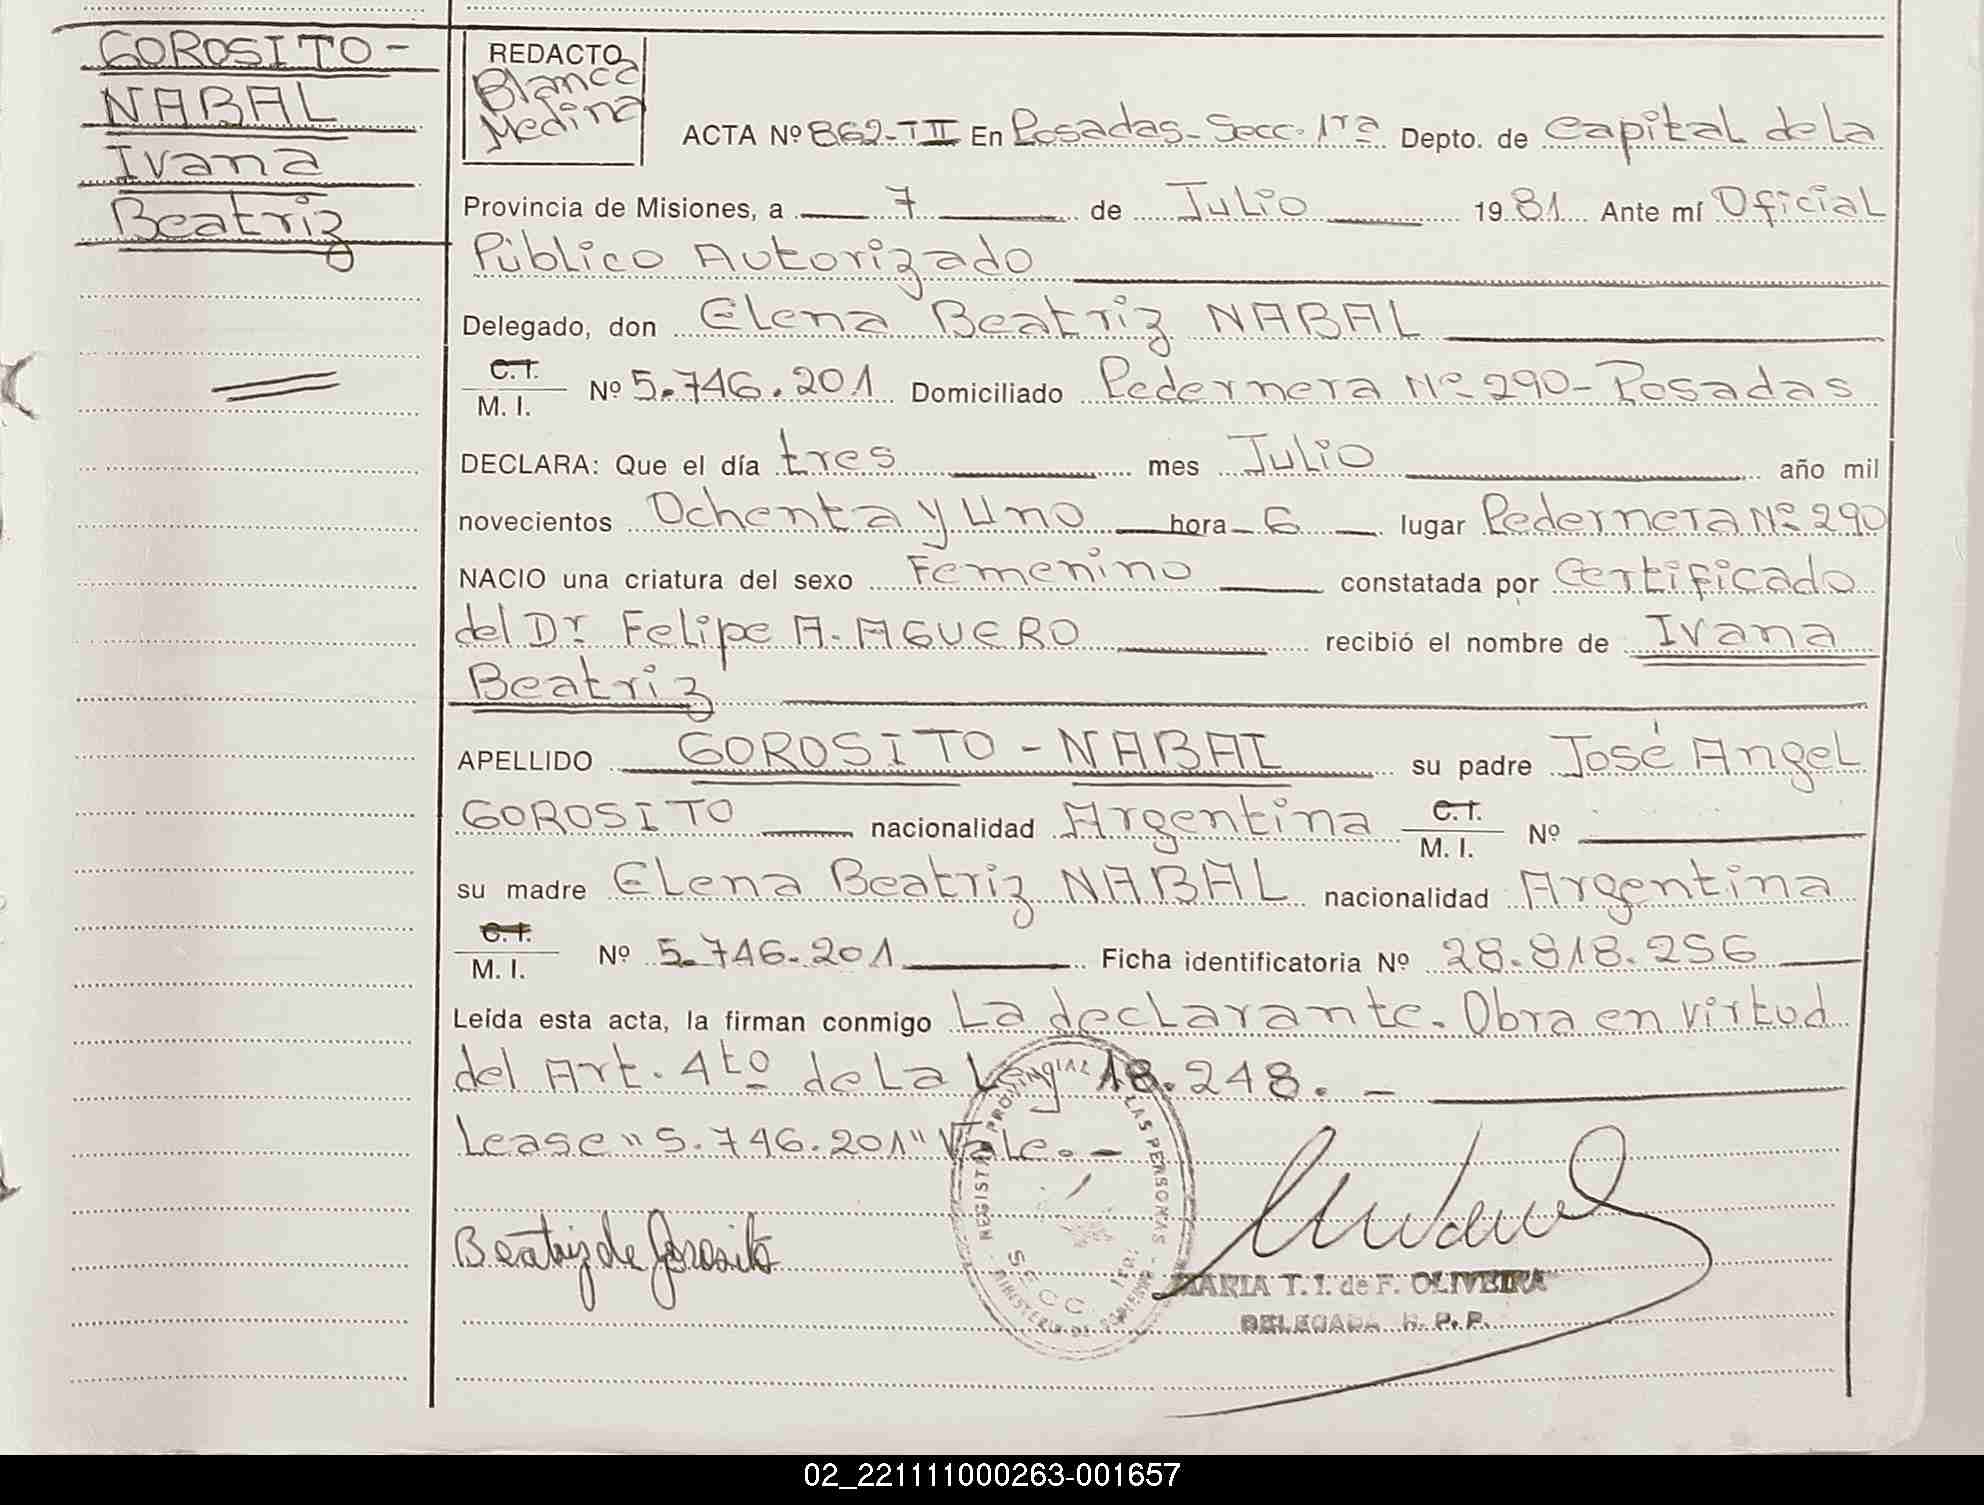 GOROSITO -
NABAL
Ivana
Beatriz
REDACTO
Blanca
Medina
ACTA Nº 862-TII En Posadas-Secc. 1ra Depto. de Capital de la
Provincia de Misiones, a 7 de Julio 1981 Ante mí Oficial
Público Autorizado
Delegado, don Elena Beatriz NABAL
C.I.
M. I. Nº 5.746.201 Domiciliado Pedernera Nº 290-Posadas
DECLARA: Que el día tres mes Julio año mil
novecientos Ochenta y Uno hora 6 lugar Pedernera Nº 290
NACIO una criatura del sexo Femenino constatada por Certificado
del Dr. Felipe A. AGUERO recibió el nombre de Ivana
Beatriz
APELLIDO GOROSITO - NABAL su padre José Angel
GOROSITO nacionalidad Argentina C.I. M. I. Nº
su madre Elena Beatriz NABAL nacionalidad Argentina
C.I.
M. I. Nº 5.746.201 Ficha identificatoria Nº 28.818.256
Leída esta acta, la firman conmigo La declarante. Obra en virtud
del Art. 4to de la Ley 18.248. -
Lease "5.746.201" Vale. -
PROVINCIAL LAS PERSONAS
SECC.
Beatriz de Gorosito
MARIA T. I. de F. OLIVEIRA
DELEGADA R. P. P.
02_221111000263-001657